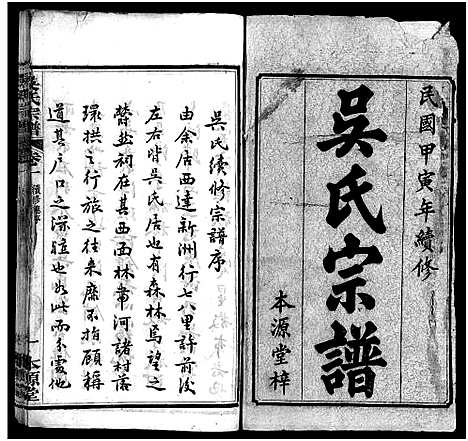 民國甲寅年續修
吳氏宗譜
本源堂梓
吳氏續修宗譜序
由余居西達新洲行七八里許前後
左右皆吳氏居也有森林焉望之
蔚蓝祠在其西西林帶河諸村落
環拱之行旅之往来靡不指顧稱
道其户口之深殖也如此而分處他
吳氏宗譜
卷一
續修
一
本源堂